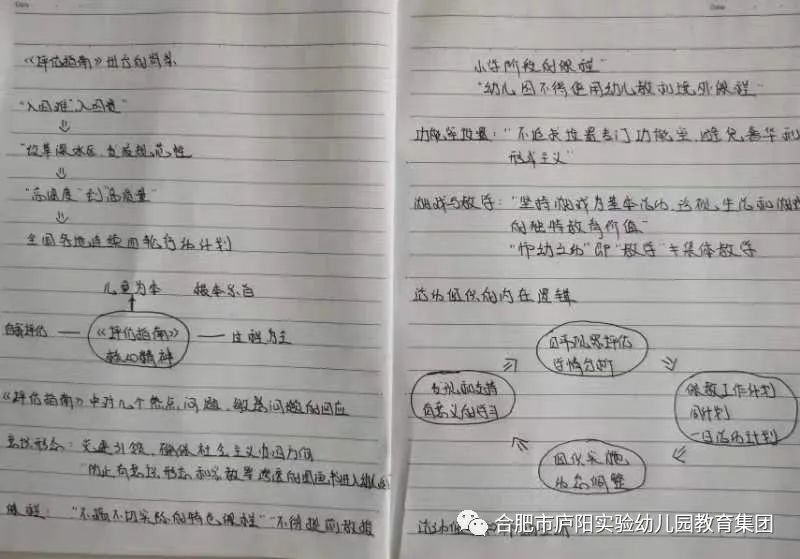 《评估指南》出台的背景
"入园难"入园贵"
"改革深水区 发展规范性
"高速度"到"高质量"
全国各地连续四轮行动计划
儿童为本
自我评估 《评估指南》 过程为主
核心精神
《评估指南》中对几个热点问题、敏感问题的回应
意识形态:党建引领、确保社会主义办园方向
防止有意识形态和宗教等渗透的图画书进入幼儿园
课程:"不搞不切实际的特色课程""不得提前教授
小学阶段的课程"
"幼儿园不得使用幼儿教材境外课程"
功能室设置:"不追求设置专门功能室,避免奢华和
形式主义"
游戏与教学:"坚持游戏为基本活动,珍视生活和游戏
的独特教育价值"
"教学"≠集体教学
活动组织的内在逻辑
日常观察评估
学情分析
发现和支持
有意义的学习
保教工作计划
周计划
一日活动计划
组织实施
动态调整
合肥市庐阳实验幼儿园教育集团